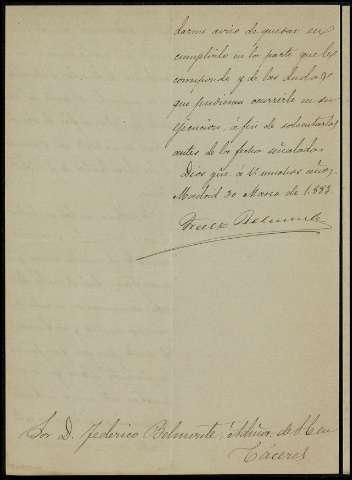 darme aviso de quedar en
cumplirlo en la parte que le
corresponde y de las dudas
que pudieran ocurrirle en su
ejecucion, á fin de solventarlas
antes de la fecha señalada.
Dios gue. a V. muchos años,
Madrid 30 Marzo de 1.883.
Belmonte
Sor. D. Federico Belmonte, de
Cáceres